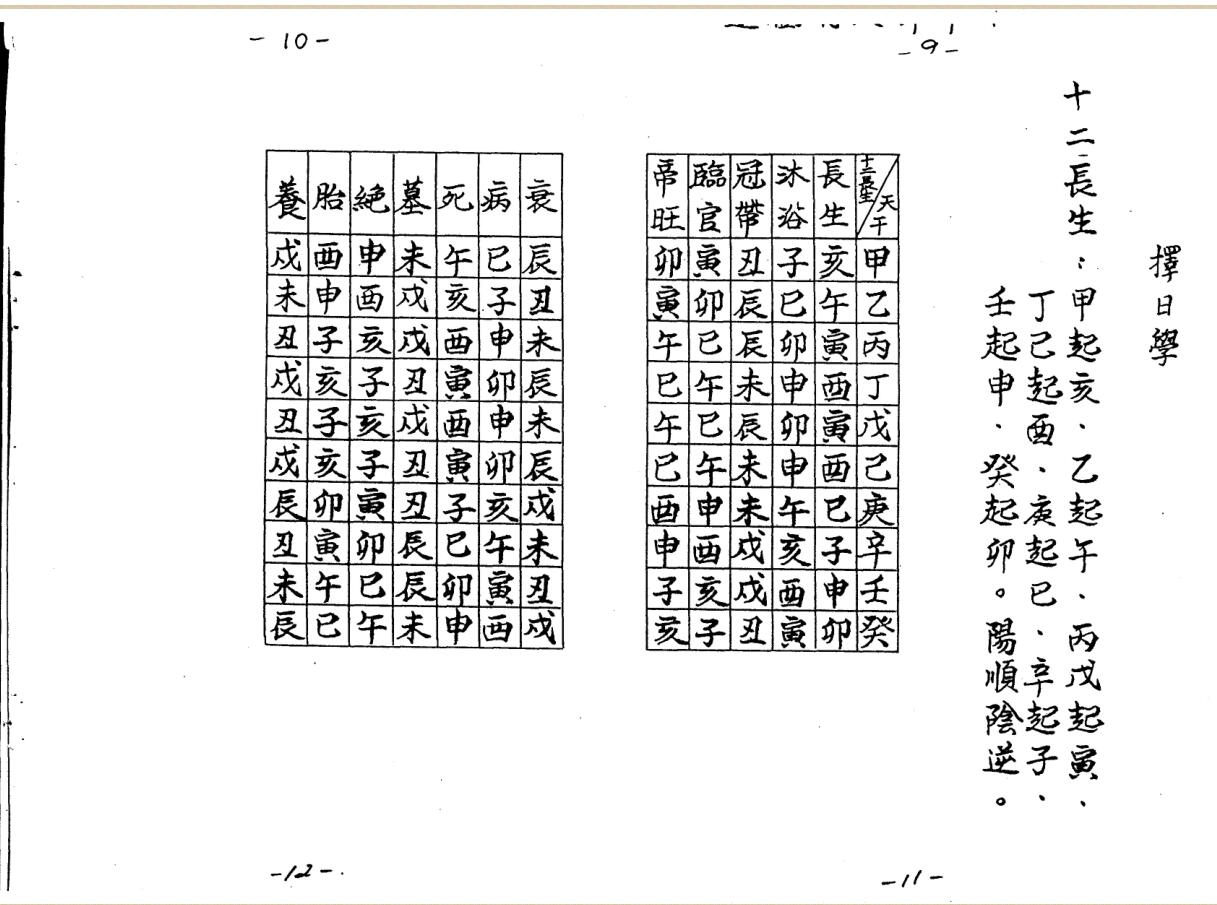 -9-
擇日學
十二長生：甲起亥、乙起午、丙戊起寅、
丁己起酉、庚起巳、辛起子、
壬起申、癸起卯。陽順陰逆。
十二長生 天干 長生 沐浴 冠帶 臨官 帝旺
甲 亥 子 丑 寅 卯
乙 午 巳 辰 卯 寅
丙 寅 卯 辰 巳 午
丁 酉 申 未 午 巳
戊 寅 卯 辰 巳 午
己 酉 申 未 午 巳
庚 巳 午 未 申 酉
辛 子 亥 戌 酉 申
壬 申 酉 戌 亥 子
癸 卯 寅 丑 子 亥
-11-
-10-
衰 病 死 墓 絕 胎 養
辰 巳 午 未 申 酉 戌
丑 子 亥 戌 酉 申 未
未 申 酉 戌 亥 子 丑
辰 卯 寅 丑 子 亥 戌
未 申 酉 戌 亥 子 丑
辰 卯 寅 丑 子 亥 戌
戌 亥 子 丑 寅 卯 辰
未 午 巳 辰 卯 寅 丑
丑 寅 卯 辰 巳 午 未
戌 酉 申 未 午 巳 辰
-12-.